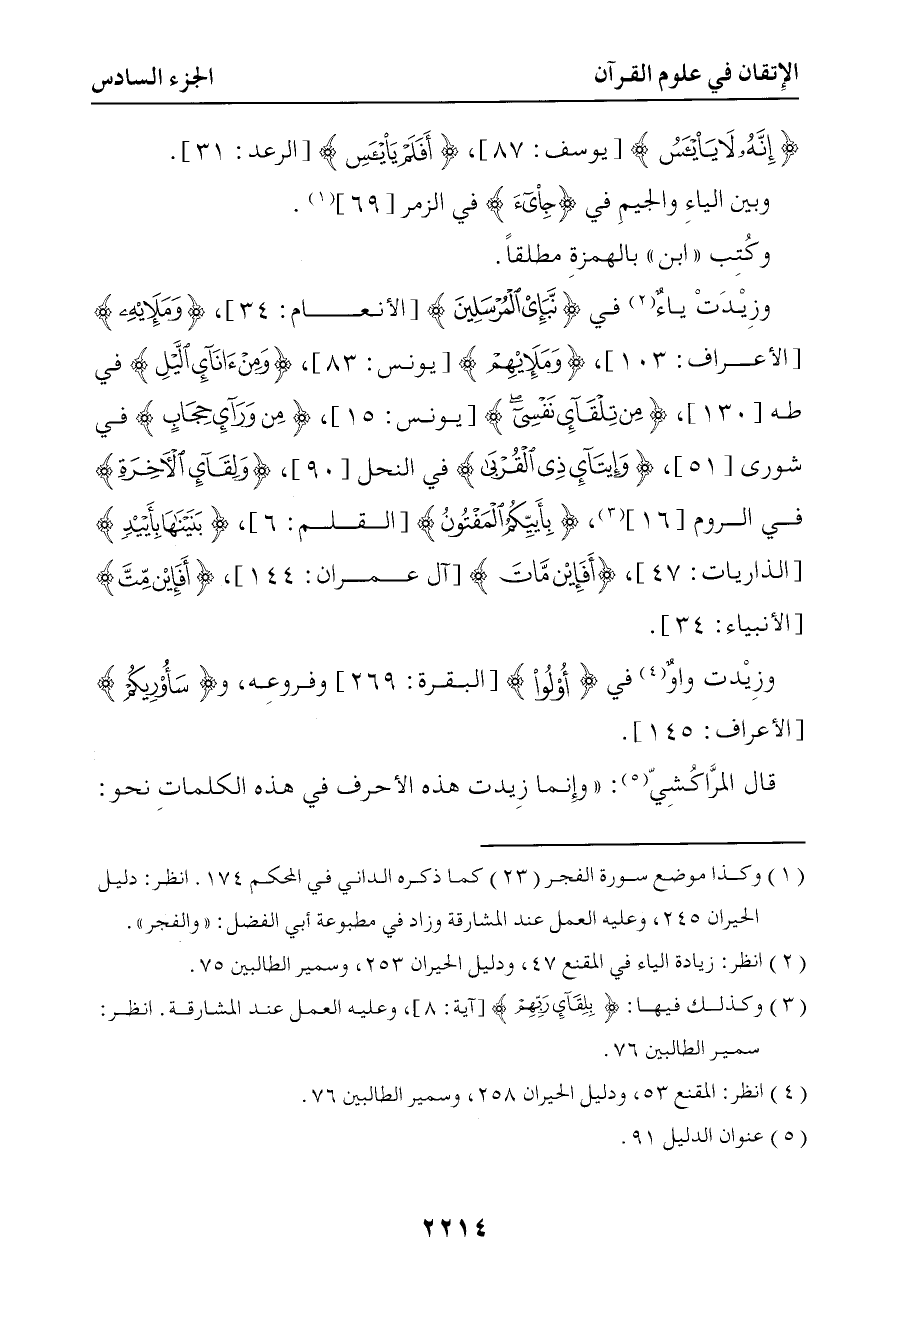 الإتقان في علوم القرآن الجزء السادس
﴿ إِنَّهُۥ لَا يَا۟يْـَٔسُ ﴾ [ يوسف : ٨٧ ]، ﴿ أَفَلَمْ يَا۟يْـَٔسِ ﴾ [ الرعد : ٣١ ] .
وبين الياءِ والجيمِ في ﴿ جِا۟ىٓءَ ﴾ في الزمر [ ٦٩ ](١) .
وكُتِب « ابن » بالهمزةِ مطلقاً .
وزِيْدَتْ ياءٌ(٢) في ﴿ نَّبَإِى۟ الْمُرْسَلِينَ ﴾ [ الأنعــــام : ٣٤ ]، ﴿ وَمَلَإِي۟هِۦ ﴾
[ الأعـــراف : ١٠٣ ]، ﴿ وَمَلَإِي۟هِمْ ﴾ [ يونس : ٨٣ ]، ﴿ وَمِنْ ءَانَآيِ الَّيْلِ ﴾ في
طه [ ١٣٠ ]، ﴿ مِن تِلْقَآيِ نَفْسِىٓ ﴾ [ يونس : ١٥ ]، ﴿ مِن وَرَآيِ حِجَابٍ ﴾ في
شورى [ ٥١ ]، ﴿ وَإِيتَآيِ ذِى الْقُرْبَى ﴾ في النحل [ ٩٠ ]، ﴿ وَلِقَآيِ الْأَخِرَةِ ﴾
في الــروم [ ١٦ ](٣)، ﴿ بِأَييِّكُمُ الْمَفْتُونُ ﴾ [ الـقـلـم : ٦ ]، ﴿ بَنَيْنَٰهَا بِأَيْي۟دٍ ﴾
[ الذاريات : ٤٧ ]، ﴿ أَفَإِي۟ن مَّاتَ ﴾ [ آل عـــمـــران : ١٤٤ ]، ﴿ أَفَإِي۟ن مِّتَّ ﴾
[ الأنبياء : ٣٤ ] .
وزِيْدت واوٌ(٤) في ﴿ أُوْلُوا۟ ﴾ [ البـقـرة : ٢٦٩ ] وفروعِـه، و﴿ سَأُو۟رِيكُمْ ﴾
[ الأعراف : ١٤٥ ] .
قال المرَّاكُشيّ(٥) : « وإنـمـا زِيدت هذه الأحرف في هذه الكلماتِ نحو :
( ١ ) وكـذا موضع سـورة الفجـر ( ٢٣ ) كمـا ذكره الداني في المحكم ١٧٤ . انظر : دليل
الحيران ٢٤٥ ، وعليه العمل عند المشارقة وزاد في مطبوعة أبي الفضل : « والفجر » .
( ٢ ) انظر : زيادة الياء في المقنع ٤٧ ، ودليل الحيران ٢٥٣ ، وسمير الطالبين ٧٥ .
( ٣ ) وكـذلـك فيهـا : ﴿ بِلِقَآيِ رَبِّهِمْ ﴾ [ آية : ٨ ]، وعليـه العمل عنـد المشارقـة . انظـر :
سميـر الطالبين ٧٦ .
( ٤ ) انظر : المقنع ٥٣ ، ودليل الحيران ٢٥٨ ، وسمير الطالبين ٧٦ .
( ٥ ) عنوان الدليل ٩١ .
٢٢١٤